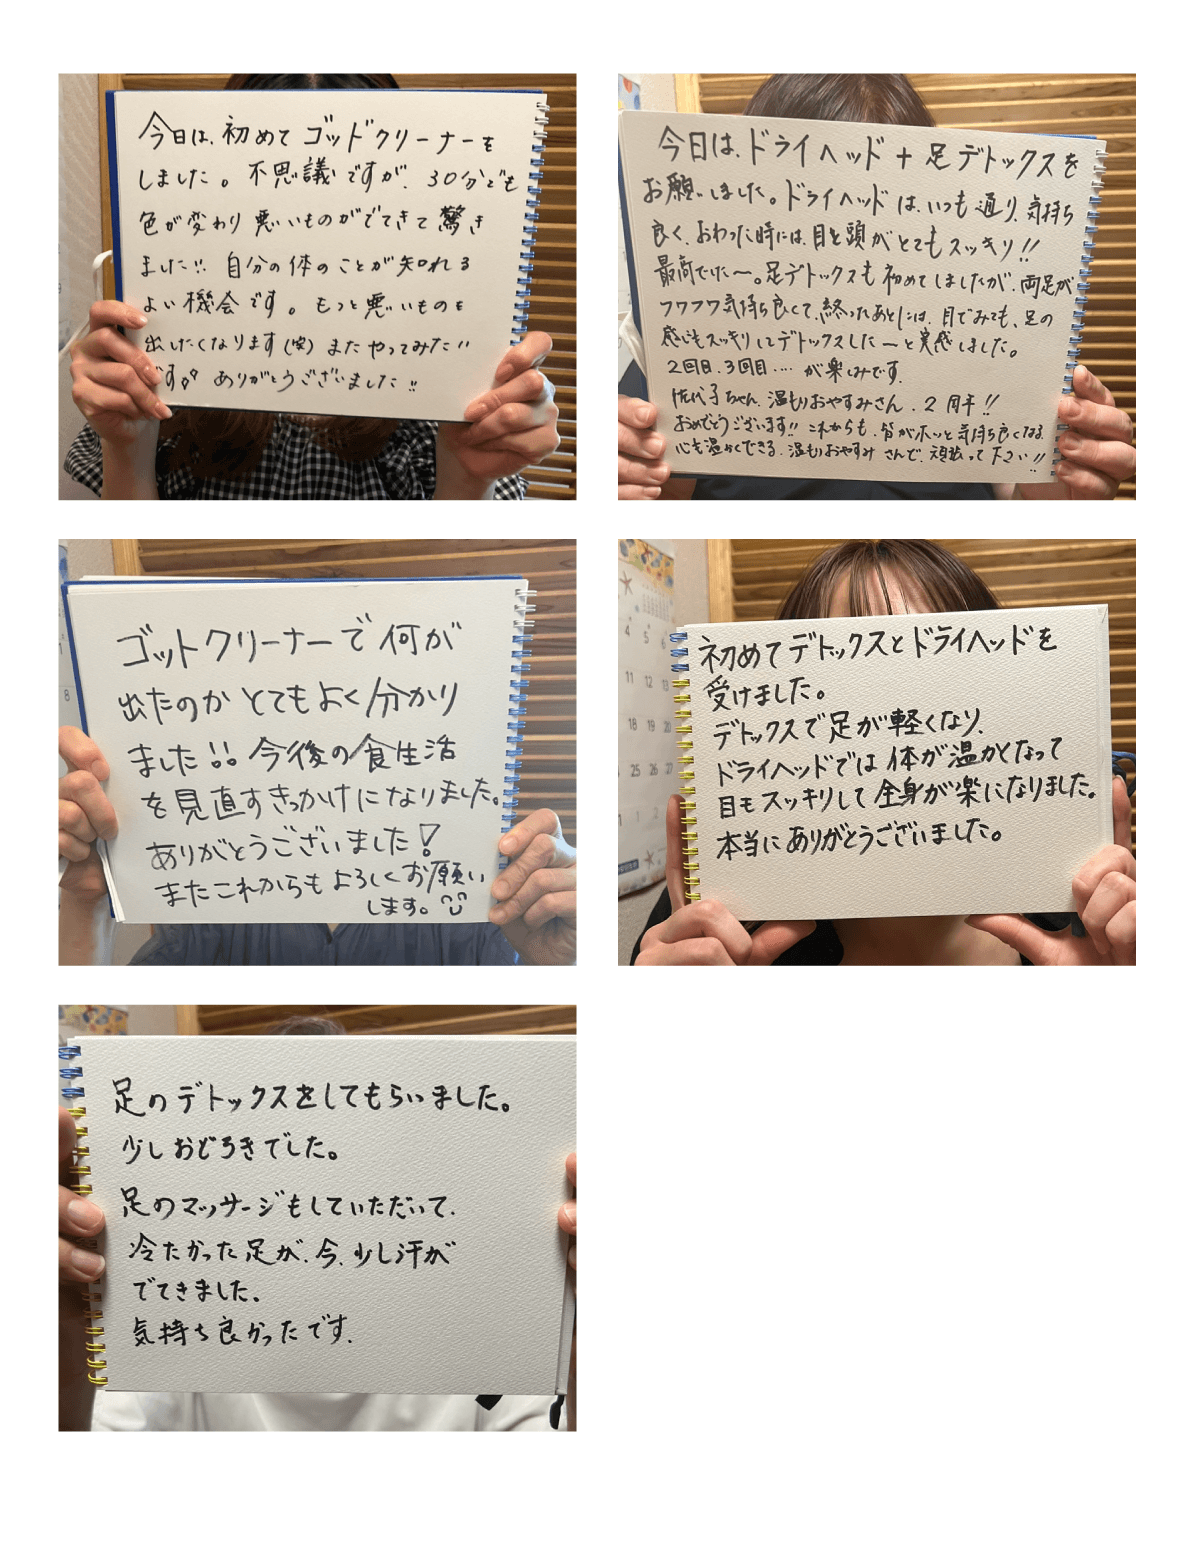 今日は、初めてゴッドクリーナーを
しました。不思議ですが、30分でも
色が変わり悪いものがでてきて驚き
ました!! 自分の体のことが知れる
よい機会です。もっと悪いものを
出したくなります(笑) またやってみたい!!
です。 ありがとうございました!!
今日は、ドライヘッド+足デトックスを
お願いしました。ドライヘッドは、いつも通り、気持ち
良く、おわった時には、目と頭がとてもスッキリ!!
最高でした〜。足デトックスも初めてしましたが、両足が
フワフワ気持ち良くて、終ったあとには、目でみても、足の
感じもスッキリしてデトックスした〜と実感しました。
2回目、3回目・・・・が楽しみです。
佐代子ちゃん、温もりおやすみさん、2周年!!
おめでとうございます!! これからも、皆がホッと気持ち良くなる、
心も温かくできる、温もりおやすみさんで、頑張って下さい!!
ゴットクリーナーで何が
出たのかとてもよく分かり
ました!! 今後の食生活
を見直すきっかけになりました。
ありがとうございました!
またこれからもよろしくお願い
します。
初めてデトックスとドライヘッドを
受けました。
デトックスで足が軽くなり、
ドライヘッドでは体が温かくなって
目もスッキリして全身が楽になりました。
本当にありがとうございました。
足のデトックスをしてもらいました。
少しおどろきでした。
足のマッサージもしていただいて、
冷たかった足が、今、少し汗が
でてきました。
気持ち良かったです。